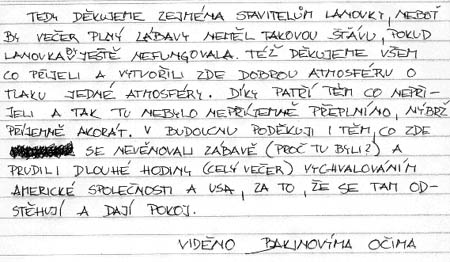 TEDY DĚKUJEME ZEJMÉNA STAVITELŮM LANOVKY, NEBOŤ
BY VEČER PLNÝ ZÁBAVY NEMĚL TAKOVOU ŠŤÁVU, POKUD
LANOVKA BY JEŠTĚ NEFUNGOVALA. TÉŽ DĚKUJEME VŠEM
CO PŘIJELI A VYTVOŘILI ZDE DOBROU ATMOSFÉRU O
TLAKU JEDNÉ ATMOSFÉRY. DÍKY PATŘÍ TĚM CO NEPŘI-
JELI A TAK TU NEBYLO NEPŘÍJEMNĚ PŘEPLNÍNO, NÝBRŽ
PŘÍJEMNĚ AKORÁT. V BUDOUCNU PODĚKUJI I TĚM, CO ZDE
SE NEVĚNOVALI ZÁBAVĚ (PROČ TU BYLI?) A
PRUDILI DLOUHÉ HODINY (CELÝ VEČER) VYCHVALOVÁNÍM
AMERICKÉ SPOLEČNOSTI A USA, ZA TO, ŽE SE TAM OD-
STĚHUJÍ A DAJÍ POKOJ.
VIDĚNO BAKINOVÍMA OČIMA